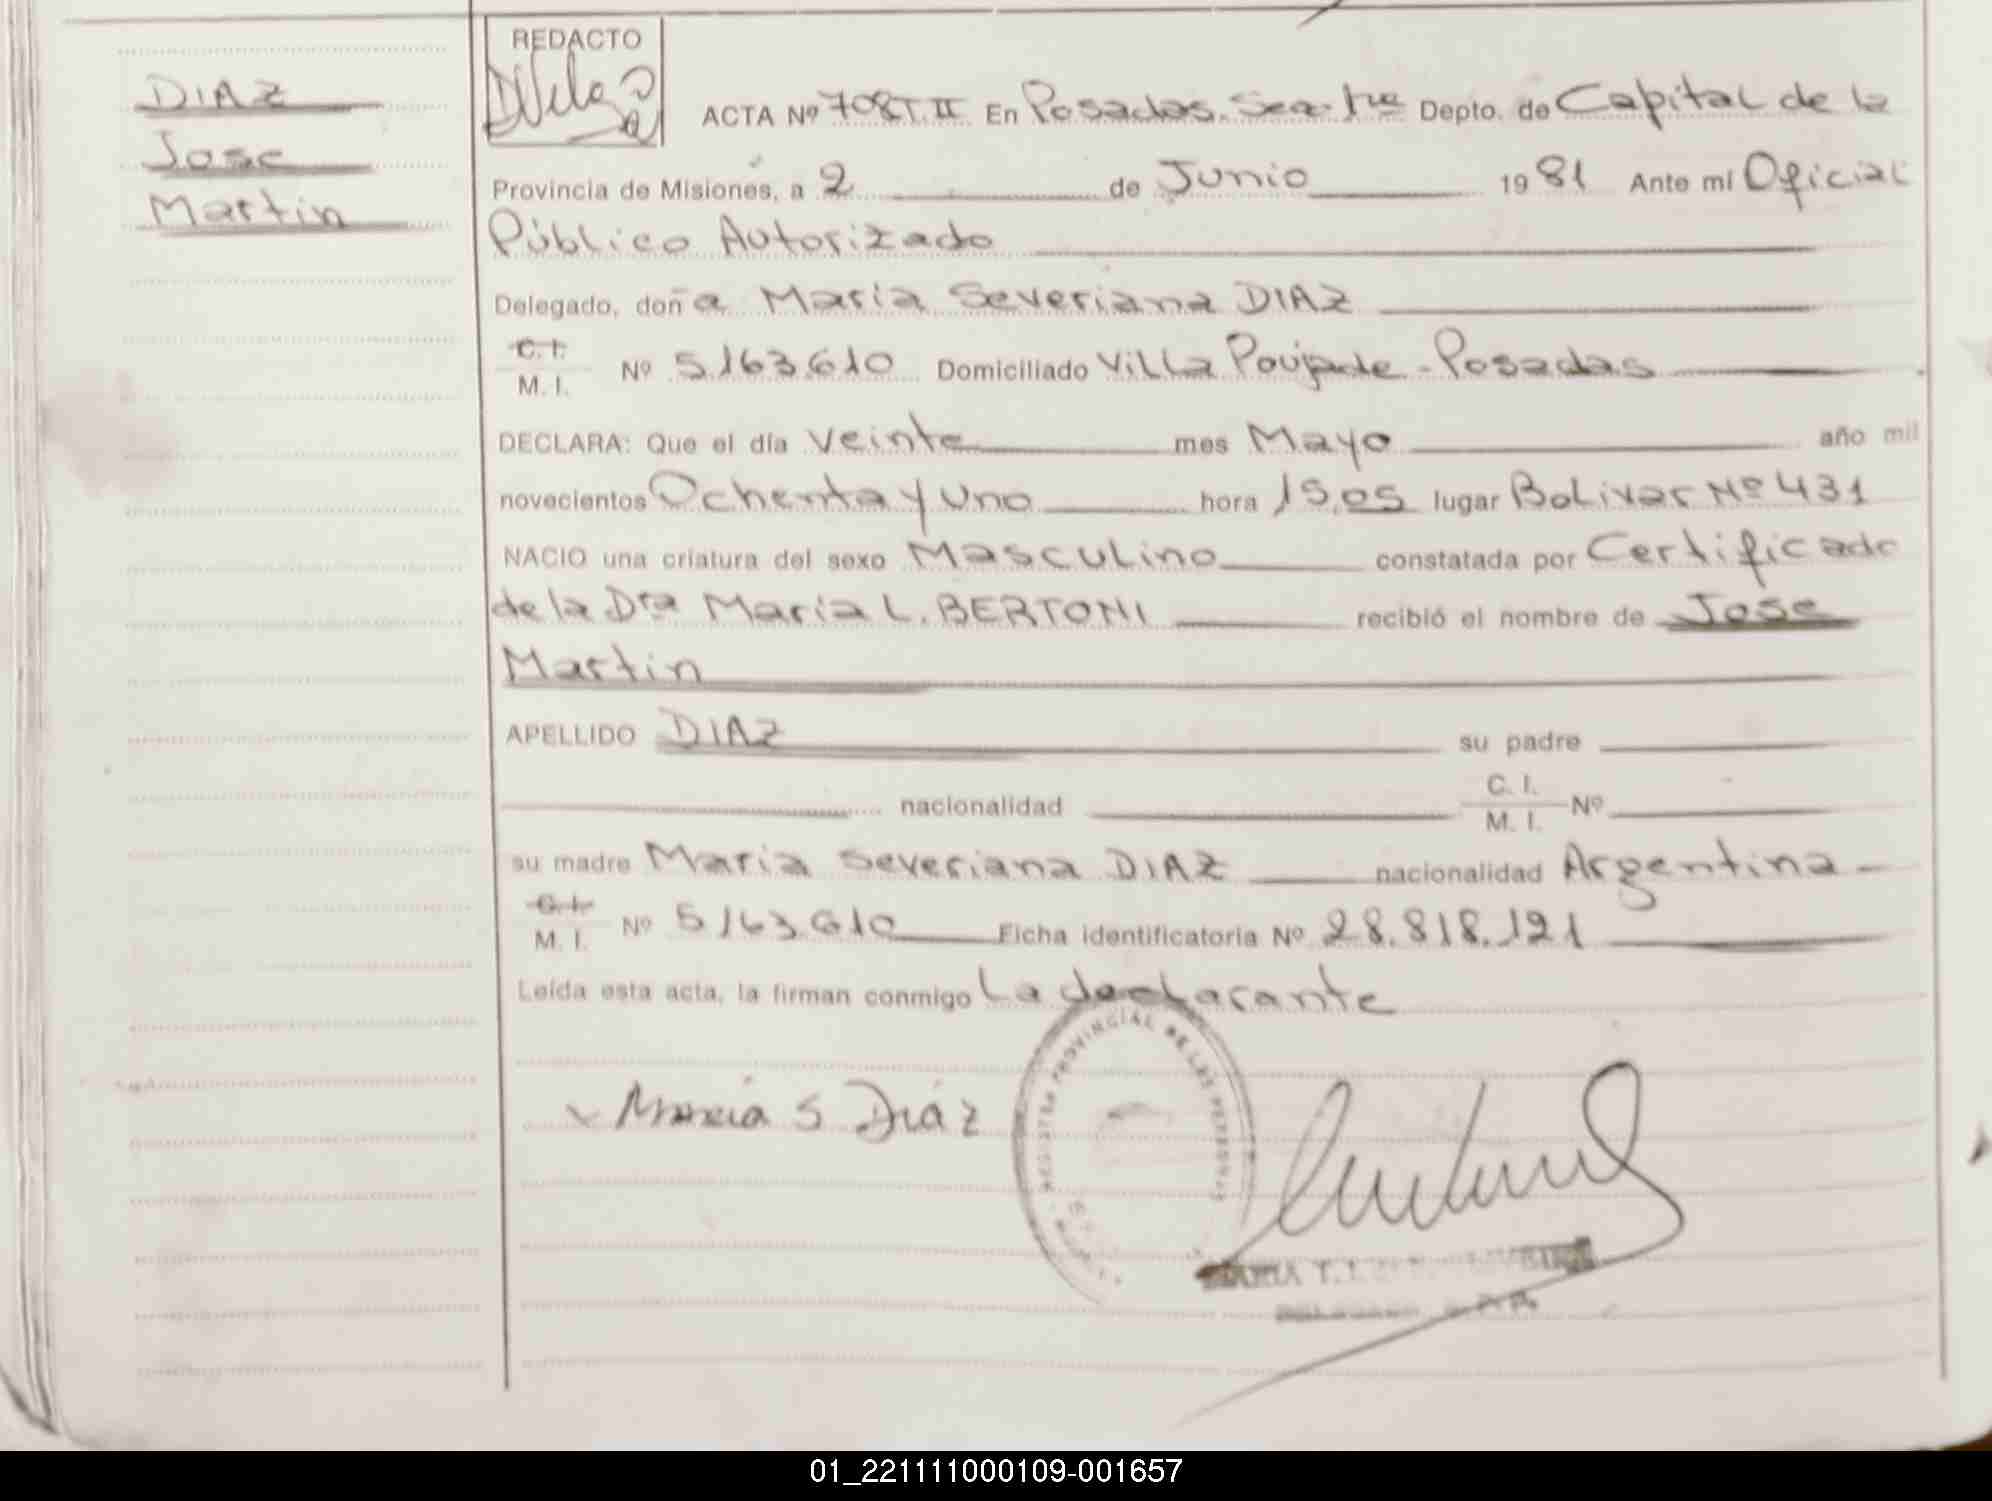 DIAZ
Jose
Martin
REDACTO
ACTA Nº 708 T. II En Posadas. Sec. 1ra Depto. de Capital de la
Provincia de Misiones, a 2 de Junio 1981 Ante mí Oficial
Público Autorizado
Delegado, doña Maria Severiana DIAZ
C. I.
M. I. Nº 5.163.610 Domiciliado Villa Poujade - Posadas
DECLARA: Que el día veinte mes Mayo año mil
novecientos Ochenta y uno hora 15,05 lugar Bolivar Nº 431
NACIO una criatura del sexo Masculino constatada por Certificado
de la Dra Maria L. BERTONI recibió el nombre de Jose
Martin
APELLIDO DIAZ su padre
nacionalidad C. I.
M. I. Nº
su madre Maria Severiana DIAZ nacionalidad Argentina
C. I.
M. I. Nº 5.163.610 Ficha identificatoria Nº 28.818.121
Leída esta acta, la firman conmigo La declarante
REGISTRO PROVINCIAL DE LAS PERSONAS
Maria S Diaz
MARIA T.
01_221111000109-001657